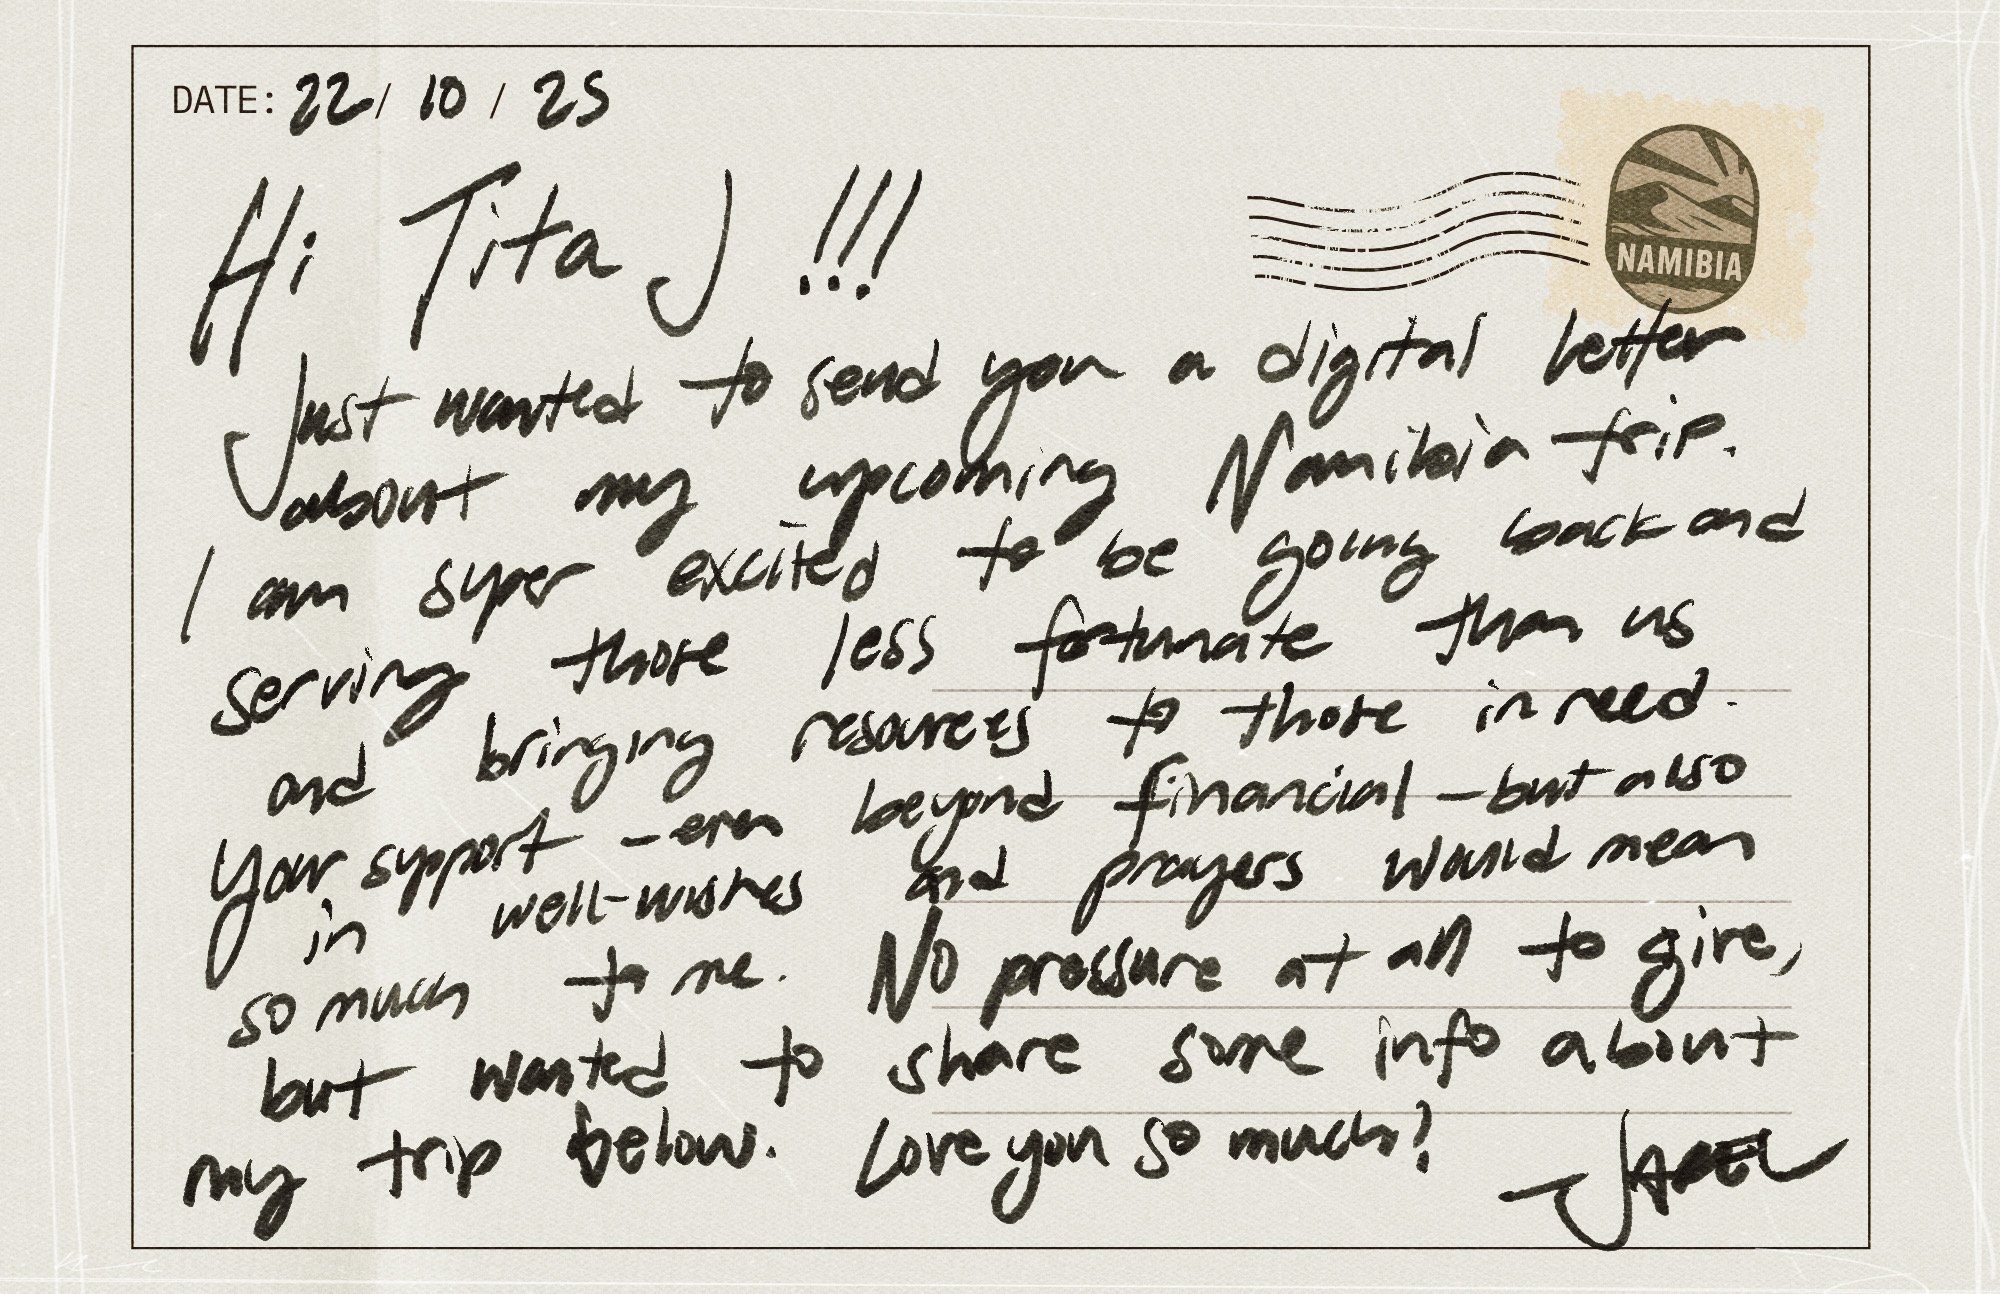 DATE: 22 / 10 / 25
NAMIBIA
Hi Tita J !!!
Just wanted to send you a digital letter
about my upcoming Namibia trip.
I am super excited to be going back and
serving those less fortunate than us
and bringing resources to those in need.
Your support - even beyond financial - but also
in well-wishes and prayers would mean
so much to me. No pressure at all to give,
but wanted to share some info about
my trip below. Love you so much!
- JAREL